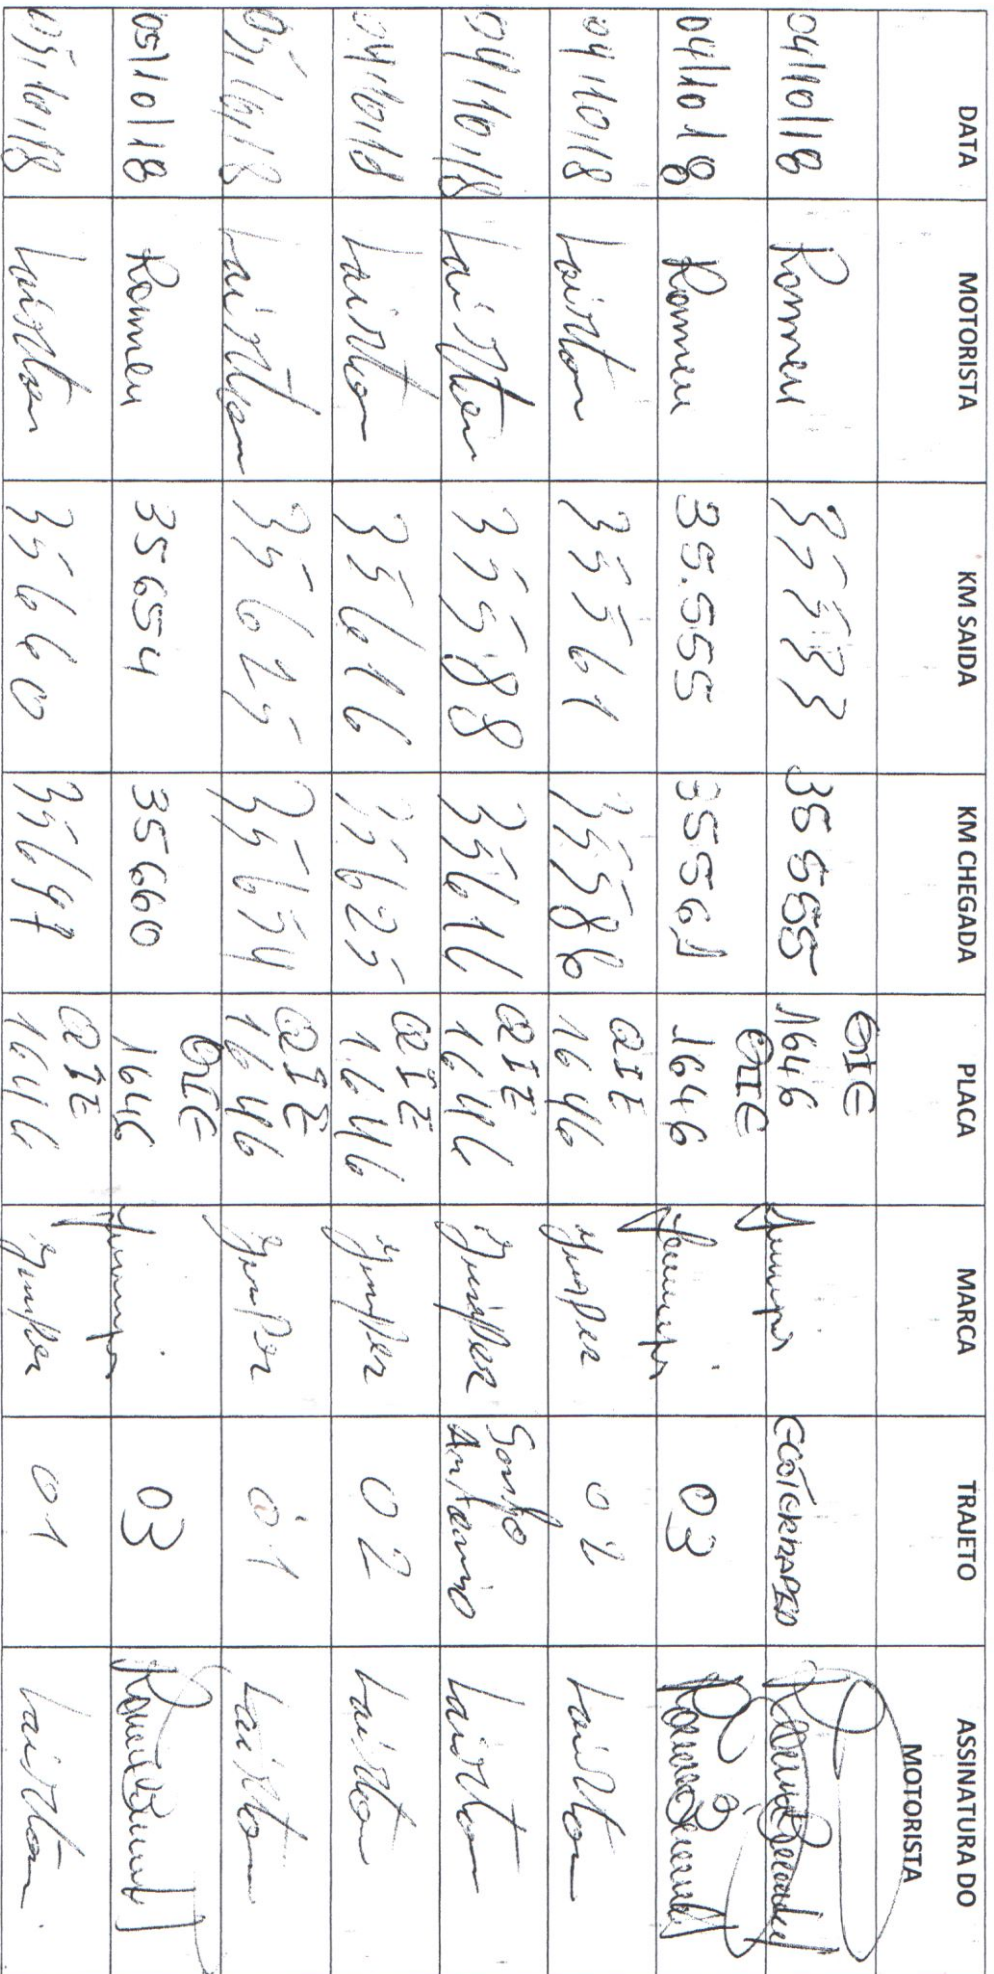 DATA MOTORISTA KM SAIDA KM CHEGADA PLACA MARCA TRAJETO ASSINATURA DO MOTORISTA
04/10/18 Romeu 35533 35555 QIE 1646
04/10/18 Romeu 35.555 35561 QIE 1646 03
04/10/18 Lairton 35561 35586 QIE 1646 Jumper 02 Lairton
04/10/18 Lairton 35588 35616 QIE 1646 Jumper Santo Antonio Lairton
04/10/18 Lairton 35616 35625 QIE 1646 Jumper 02 Lairton
05/10/18 Lairton 35625 35654 QIE 1646 Jumper 01 Lairton
05/10/18 Romeu 35654 35660 QIE 1646 03
05/10/18 Lairton 35660 35697 QIE 1646 Jumper 01 Lairton